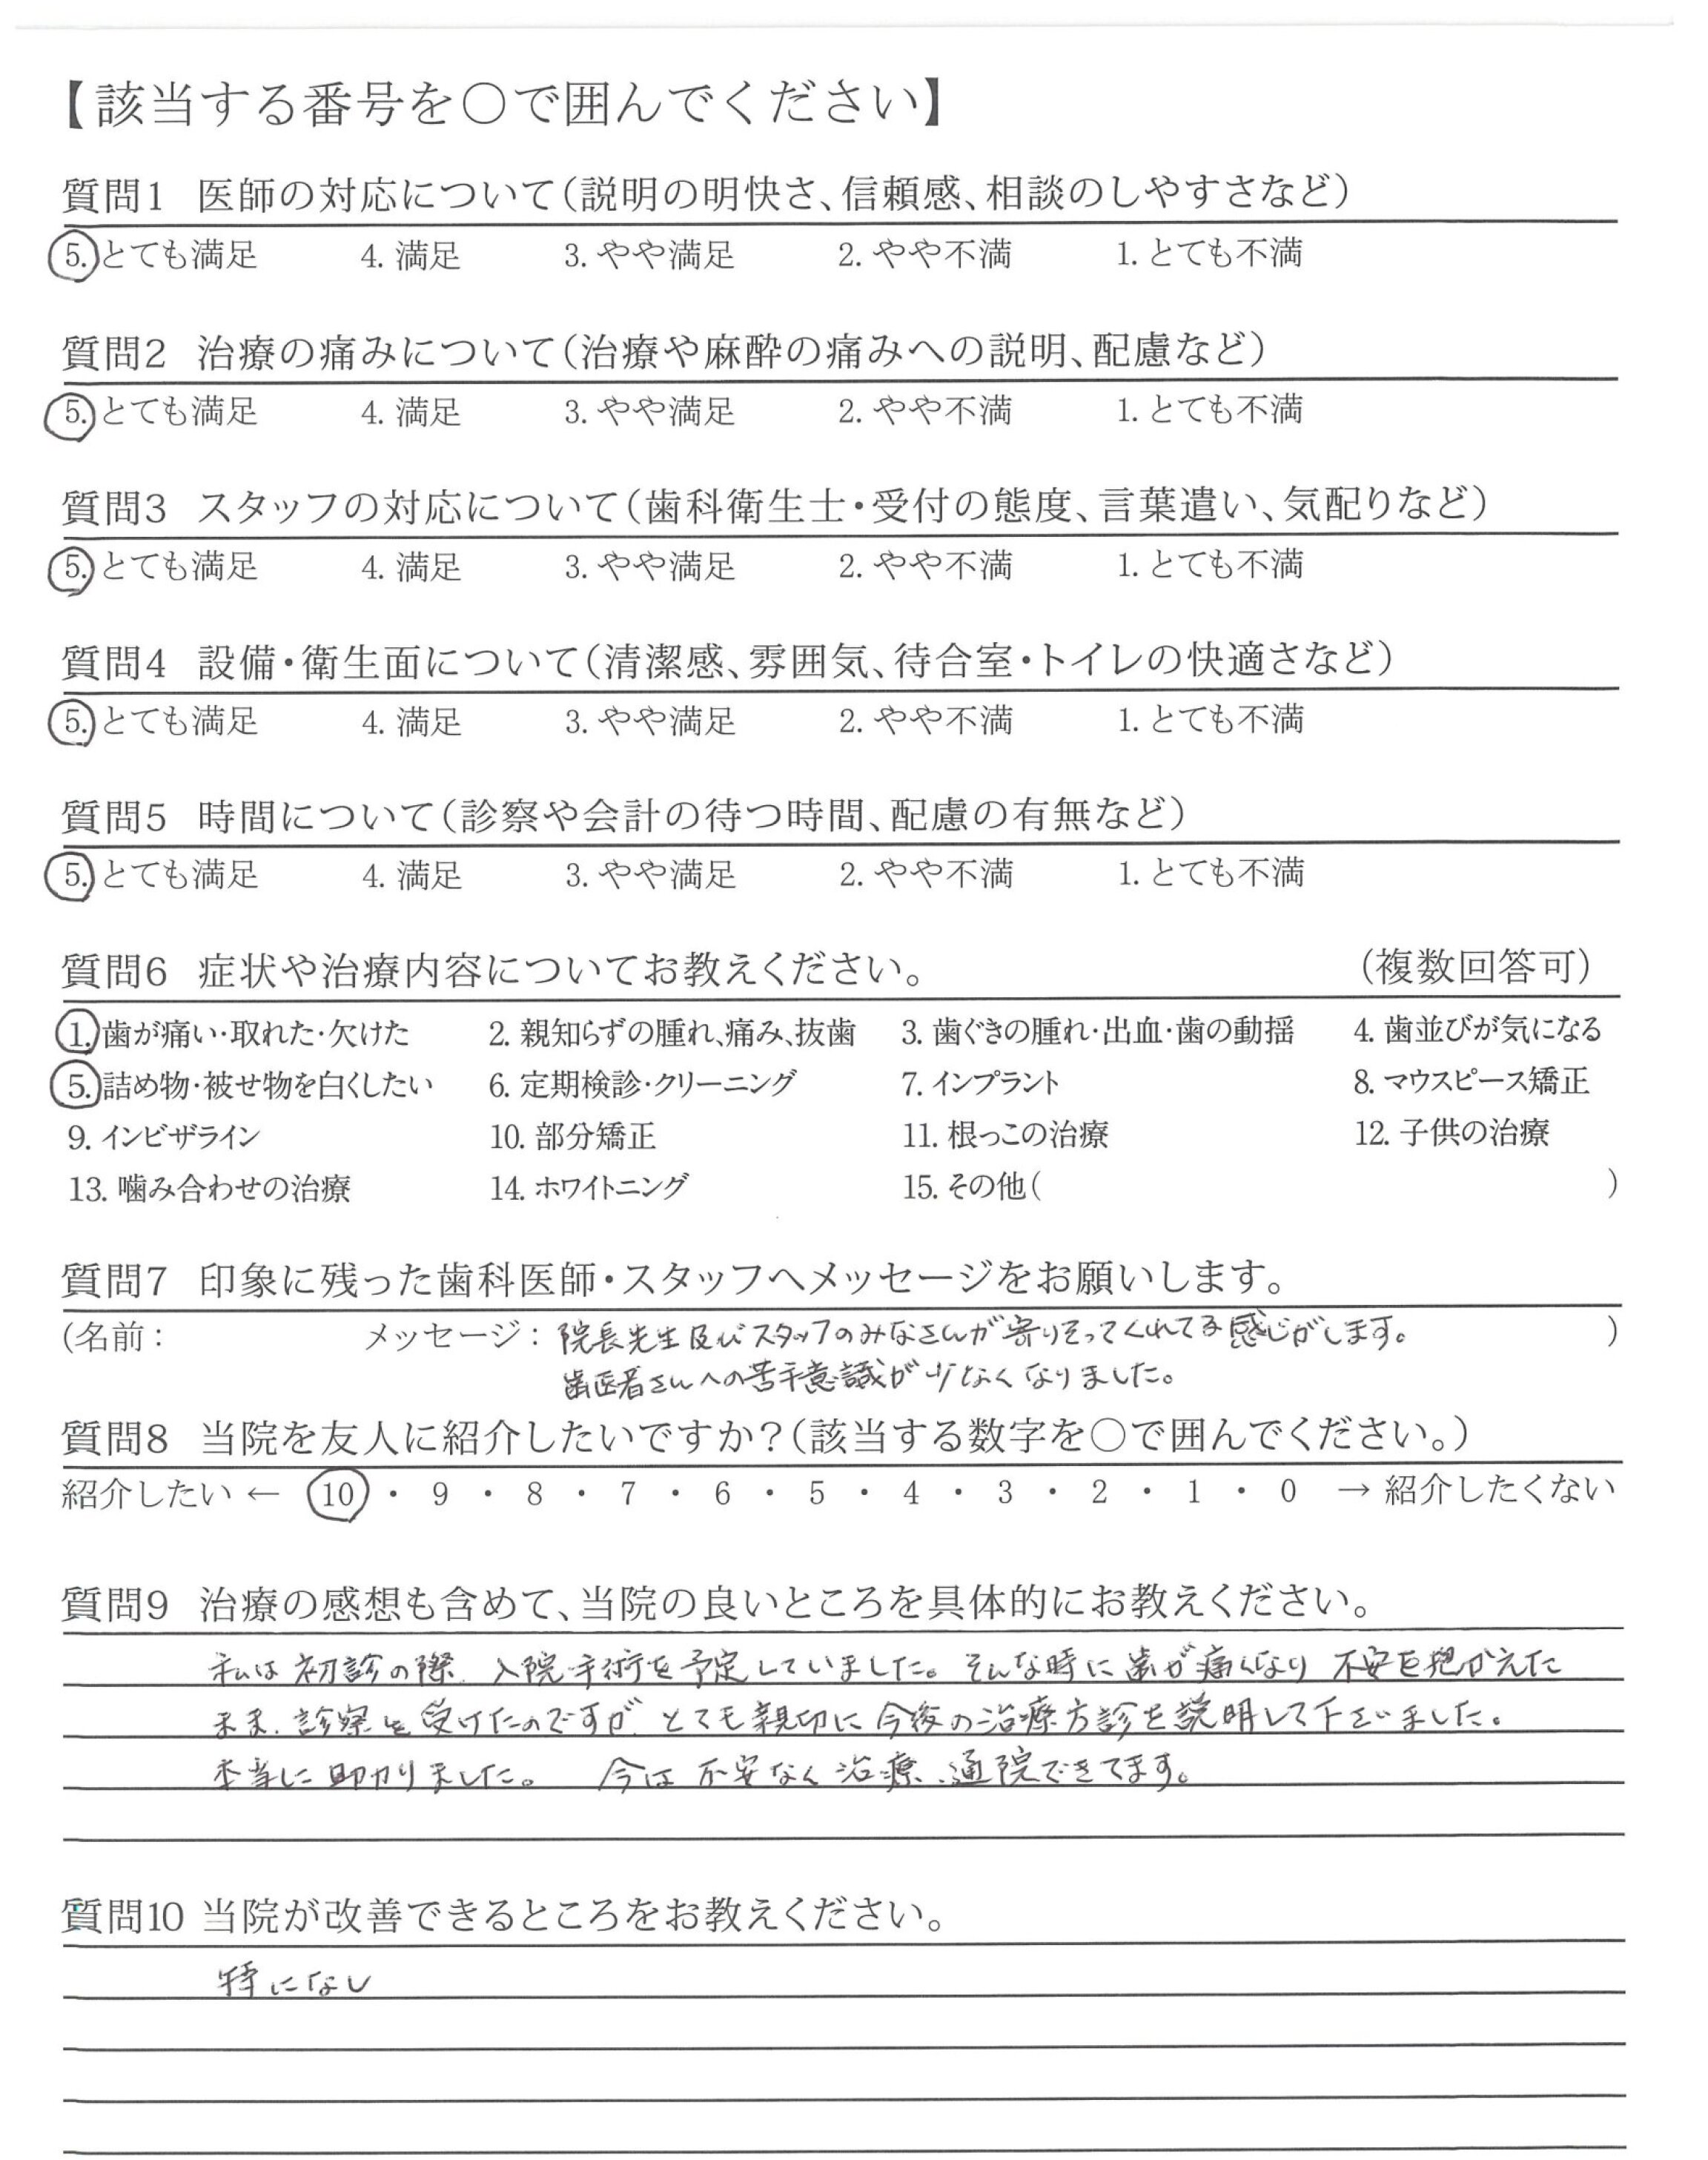 【該当する番号を〇で囲んでください】
質問1 医師の対応について(説明の明快さ、信頼感、相談のしやすさなど)
5. とても満足 4. 満足 3. やや満足 2. やや不満 1. とても不満
質問2 治療の痛みについて(治療や麻酔の痛みへの説明、配慮など)
5. とても満足 4. 満足 3. やや満足 2. やや不満 1. とても不満
質問3 スタッフの対応について(歯科衛生士・受付の態度、言葉遣い、気配りなど)
5. とても満足 4. 満足 3. やや満足 2. やや不満 1. とても不満
質問4 設備・衛生面について(清潔感、雰囲気、待合室・トイレの快適さなど)
5. とても満足 4. 満足 3. やや満足 2. やや不満 1. とても不満
質問5 時間について(診察や会計の待つ時間、配慮の有無など)
5. とても満足 4. 満足 3. やや満足 2. やや不満 1. とても不満
質問6 症状や治療内容についてお教えください。 (複数回答可)
1. 歯が痛い・取れた・欠けた 2. 親知らずの腫れ、痛み、抜歯 3. 歯ぐきの腫れ・出血・歯の動揺 4. 歯並びが気になる
5. 詰め物・被せ物を白くしたい 6. 定期検診・クリーニング 7. インプラント 8. マウスピース矯正
9. インビザライン 10. 部分矯正 11. 根っこの治療 12. 子供の治療
13. 噛み合わせの治療 14. ホワイトニング 15. その他( )
質問7 印象に残った歯科医師・スタッフへメッセージをお願いします。
(名前: メッセージ: 院長先生及びスタッフのみなさんが寄りそってくれてる感じがします。 )
歯医者さんへの苦手意識が少なくなりました。
質問8 当院を友人に紹介したいですか?(該当する数字を〇で囲んでください。)
紹介したい ← 10 ・ 9 ・ 8 ・ 7 ・ 6 ・ 5 ・ 4 ・ 3 ・ 2 ・ 1 ・ 0 → 紹介したくない
質問9 治療の感想も含めて、当院の良いところを具体的にお教えください。
私は初診の際、入院手術を予定していました。そんな時に歯が痛くなり 不安を抱かえた
まま、診察を受けたのですが、とても親切に今後の治療方診を説明して下さいました。
本当に助かりました。 今は不安なく治療、通院できてます。
質問10 当院が改善できるところをお教えください。
特になし